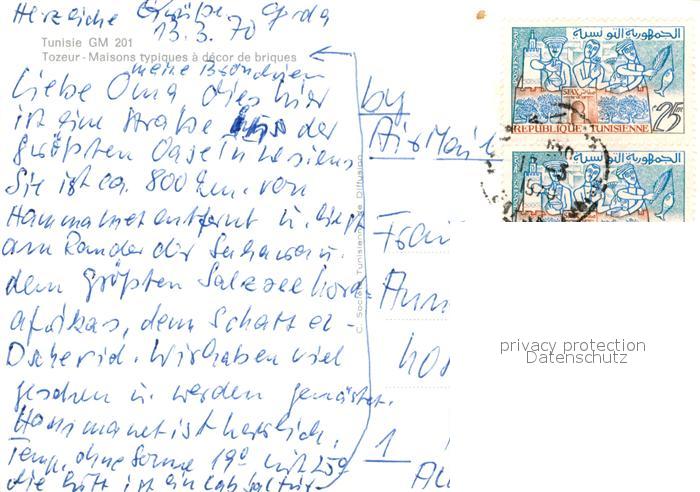 Herzliche Grüße. Gerda
13.3.70
Tunisie GM 201
Tozeur - Maisons typiques à décor de briques
meine
Liebe Oma dies hier
ist eine Straße aus der
größten Oase in
Sie ist ca. 800 km. von
Hammamet entfernt u. liegt
am Rande der Sahara u.
dem größten Salzsee Nord-
afrikas, dem Schott el-
Dscherid. Wir haben viel
gesehen u. werden gemästet.
Hammamet ist herrlich,
Temp. ohne Sonne 19° mit 25°
die Luft ist ein Labsal für
C. Société Tunisienne de Diffusion
by
Air Mail
1
الجمهورية التونسية
SFAX
25
REPUBLIQUE TUNISIENNE
الجمهورية التونسية
1970
privacy protection
Datenschutz